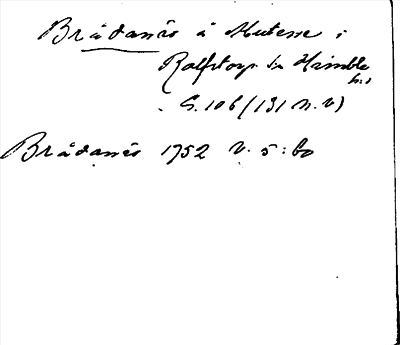 Brådanäs å Mutene i
Ralfstorp sn Himble
hd
S. 106 (131 n. v)
Brådanäs 1752 v. 5: 60